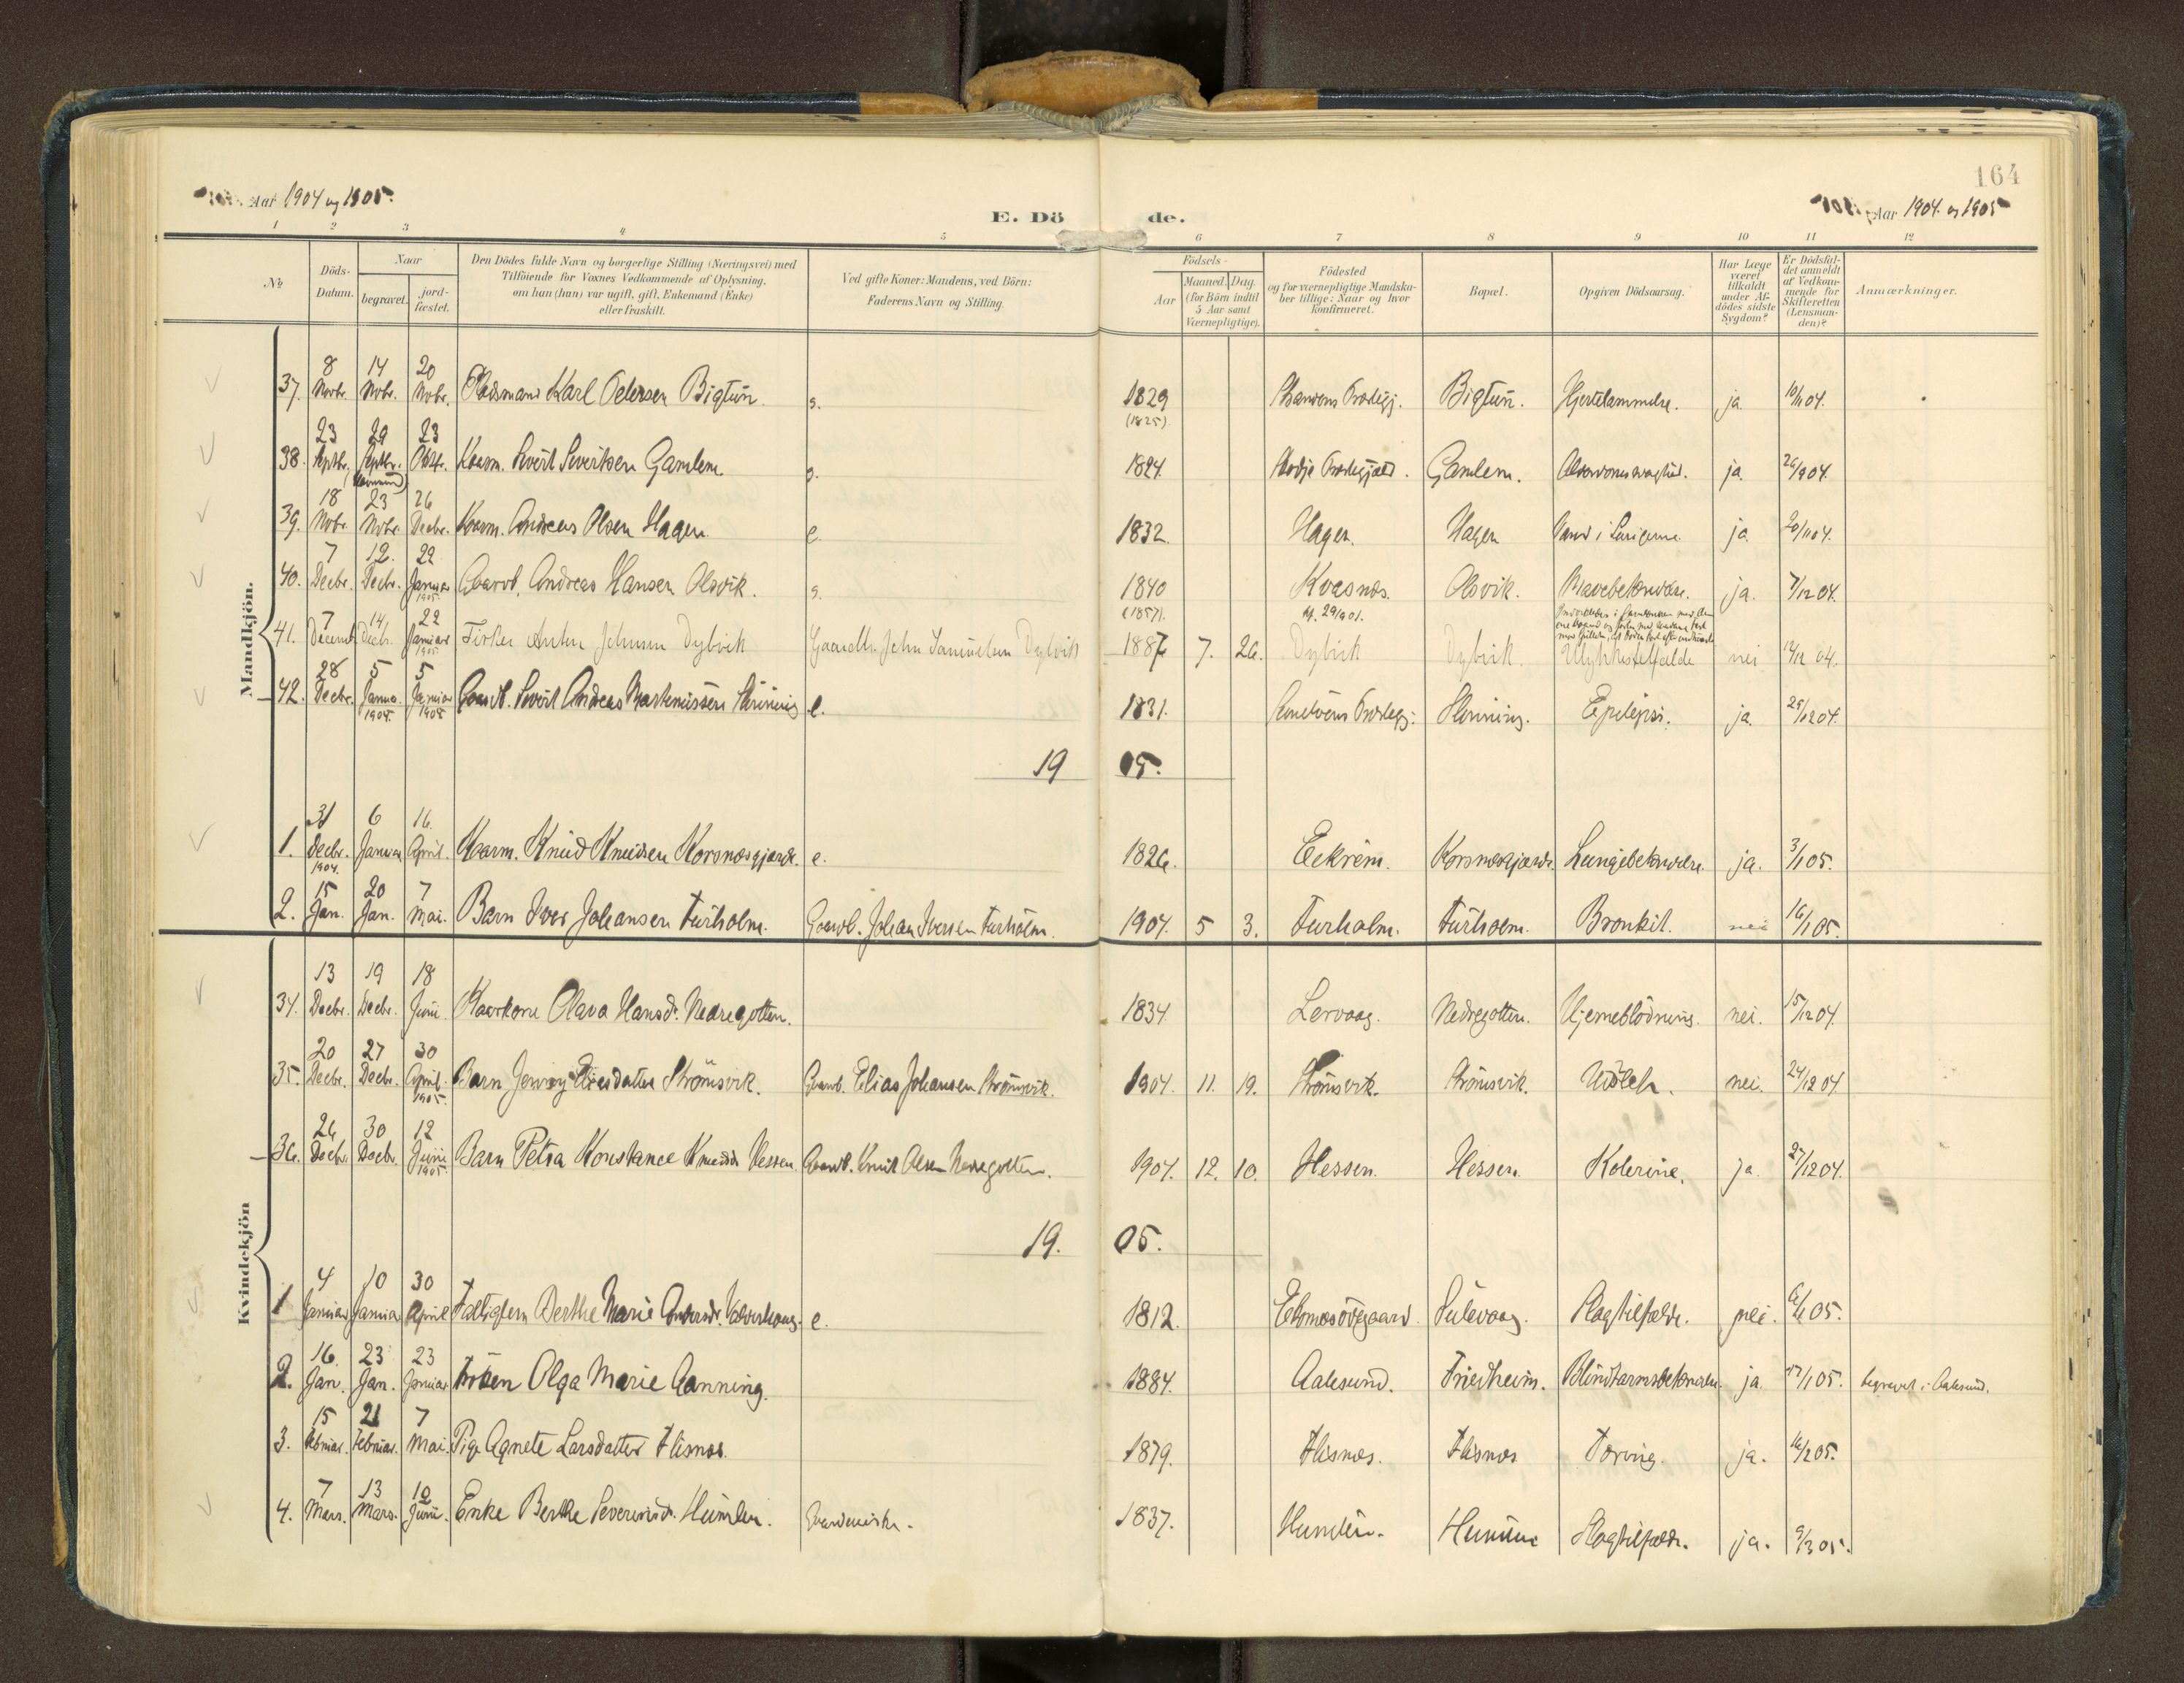 164
Aar 1904 og 1905.
E. Döde.
Aar 1904 og 1905
1 2 3 4 5 6 7 8 9 10 11 12
№
Döds-Datum.
Naar
begravet.
jord-fæstet.
Den Dödes fulde Navn og borgerlige Stilling (Næringsvei) med
Tilföiende for Voxnes Vedkommende af Oplysning,
om han (hun) var ugift, gift, Enkemand (Enke)
eller fraskilt.
Ved gifte Koner: Mandens, ved Börn:
Faderens Navn og Stilling.
Födsels-
Aar
Maaned. Dag.
(for Börn indtil
5 Aar samt
Værnepligtige).
Födested
og for værnepligtige Mandska-
ber tillige: Naar og hvor
konfirmeret.
Bopæl.
Opgiven Dödsaarsag.
Har Læge
været
tilkaldt
under Af-
dödes sidste
Sygdom?
Er Dödsfal-
det anmeldt
af Vedkom-
mende for
Skifteretten
(Lensman-
den)?
Anmærkninger.
Mandkjön.
37. 8 Novbr. 14 Novbr. 20 Novbr. Karl Pedersen Bigtun. g. 1829 (1825) Bigtun. Hjertelammelse. ja. 10/11 04.
38. 23 Septbr. 29 Septbr. 23 Oktbr. Kaarm. Sivert Sivertsen Gamlem. g. 1824. Gamlem. ja. 26/9 04.
39. 18 Novbr. 23 Novbr. 26 Decbr. Kaarm. Andreas Olsen Hagen e. 1832. Hagen. Hagen Vand i Lungerne. ja 20/11 04.
40. 7 Decbr. 12. Decbr. 22 Januar 1905. Gaarbr. Andreas Hansen Olsvik. g. 1840 Kvasnes. Olsvik. Mavebetændelse. ja. 7/12 04.
41. 7 Decemb 14 Decbr. 22 Januar 1905. Fisker Anton Johnsen Dybvik Gaardbr. John Samuelsen Dybvik (1857) 1887 7. 26. Dybvik Dybvik. Ulykkestilfælde nei 12/12 04.
42. 28 Decbr. 5 Januar 1905. 5 Januar 1905 Gaardb. Sivert Andreas Martinussen e. 1831. Epilepsi. ja 29/12 04.
1905.
1. 31 Decbr. 1904. 6 Januar 16. April. Kaarm. Knud Knudsen Korsnesgjærde. e. 1826. Eekrem. Korsnesgjærde. Lungebetændelse. ja. 3/1 05.
2. 15 Jan. 20 Jan. 7 Mai. Barn Iver Johansen Furholm. Gaardb. Johan Iversen Furholm. 1904. 5 3. Furholm. Furholm. Bronkit. nei 16/1 05.
Kvindekjön
34. 13 Decbr. 19 Decbr. 18 Juni. Kaarkone Olava Hansd. Nedregotten. 1834. Lervaag. Nedregotten. Hjerneblödning. nei. 15/12 04.
35. 20 Decbr. 27 Decbr. 30 April. 1905. Barn Jenny Eliesdatter Strömsvik. Gaardb. Elias Johansen Strömsvik. 1904. 11. 19. Strömsvik. Strömsvik. nei. 24/12 04.
36. 26 Decbr. 30 Decbr. 12 Juni 1905 Barn Petra Konstance Knudsd. Hessen. Gaardb. Knut Olsen 1904. 12. 10. Hessen. Hessen. Kolerine. ja 27/12 04.
1905.
1 4 Januar 10 Januar 30 April Fattiglem Berthe Marie e. 1812. Sulevaag. Slagtilfælde. nei. 6/1 05.
2. 16. Jan. 23 Jan. 23 Januar Fröken Olga Marie Ganning. 1884. Aalesund. Friedheim. Blindtarmsbetændelse. ja. 17/1 05. begravet i Aalesund.
3. 15 Februar. 21 Februar. 7 Mai. Pige Agnete Larsdatter Flisnes. 1879. Flisnes. Flisnes Tæring. ja. 16/2 05.
4. 7 Mars. 13 Mars. 10 Juni. Enke Berthe Severinsd. Humlen. 1837. Humlen. Slagtilfælde. ja. 9/3 05.